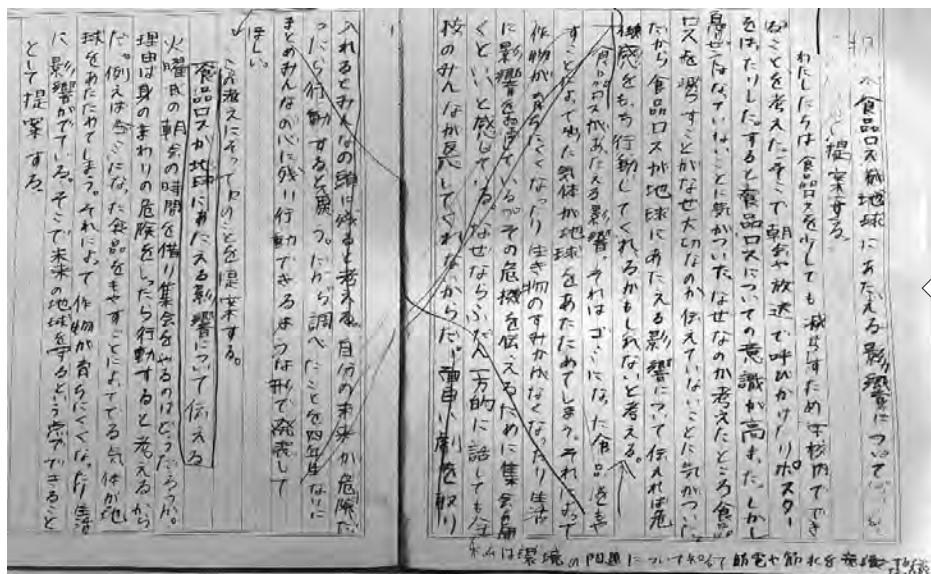 食品ロスが地球にあたえる影響について
提案する。
わたしたちは食品ロスを少しでも減らすため学校内ででき
ることを考えた。そこで朝会や放送で呼びかけたりポスター
をはったりした。すると食品ロスについての意識が高まった。しかし
なっていないことに気がついた。なぜなのか考えたところ食品
ロスを減らすことがなぜ大切なのか伝えていないことに気がついた。
だから食品ロスが地球にあたえる影響について伝えれば危
機感をもち行動してくれるかもしれないと考える。
食品ロスがあたえる影響、それはゴミになった食品をもや
すことによって出た気体が地球をあたためてしまう。それによって
作物が育ちにくくなったり生き物のすみかがなくなったり生活
に影響をあたえている。その危機を伝えるために集会を開
くといいと感じている。なぜならふだん一方的に話しても全
校のみんなが反してくれないからだ。
は環境の問題について知って節電や節水を
入れるとみんなの頭に残ると考える。自分の未来が危険だ
ったら行動すると思う。だから調べたことを四年生なりに
まとめみんなの心に残り行動できるような形で発表して
ほしい。
この考えにそって次のことを提案する。
食品ロスが地球にあたえる影響について伝える
火曜日の朝会の時間を借り集会をするのはどうだろうか。
理由は身のまわりの危険をしったら行動すると考えるから
だ。例えばゴミになった食品をもやすことによってでる気体が地
球をあたためてしまう。それによって作物が育ちにくくなったり生活
に影響がでている。そこで未来の地球を守るという点でできること
として提案する。